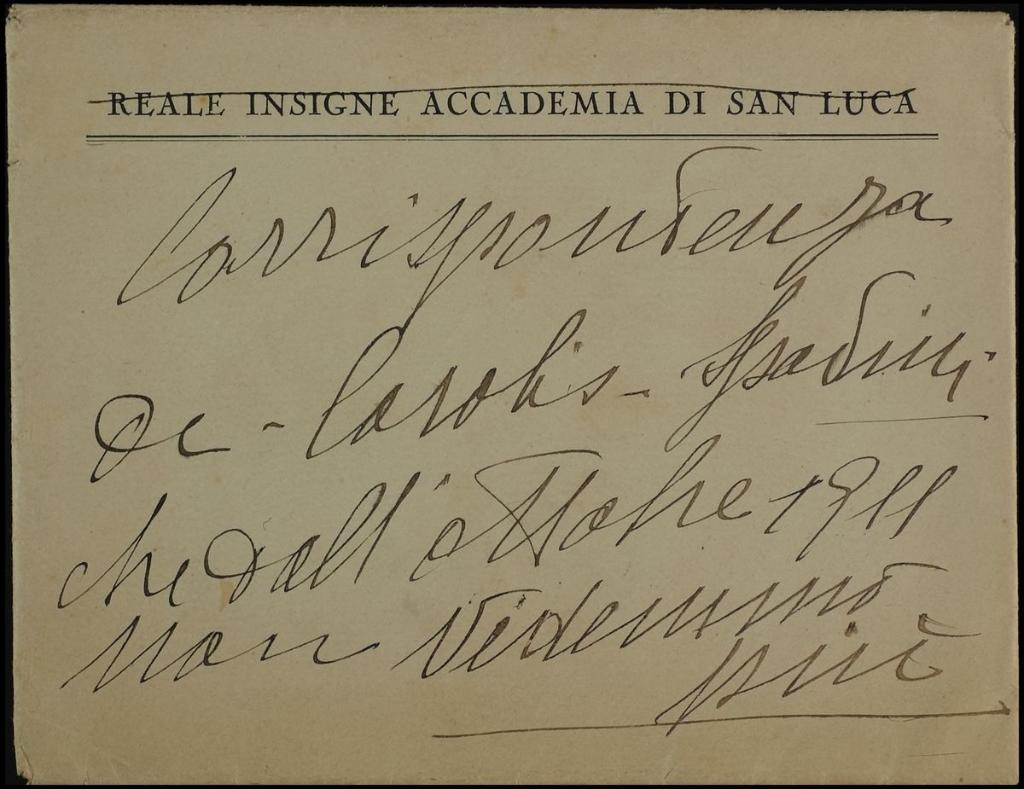 REALE INSIGNE ACCADEMIA DI SAN LUCA
Corrispondenza
De - Carolis - Spadini,
che dall' ottobre 1911
non vedemmo
più